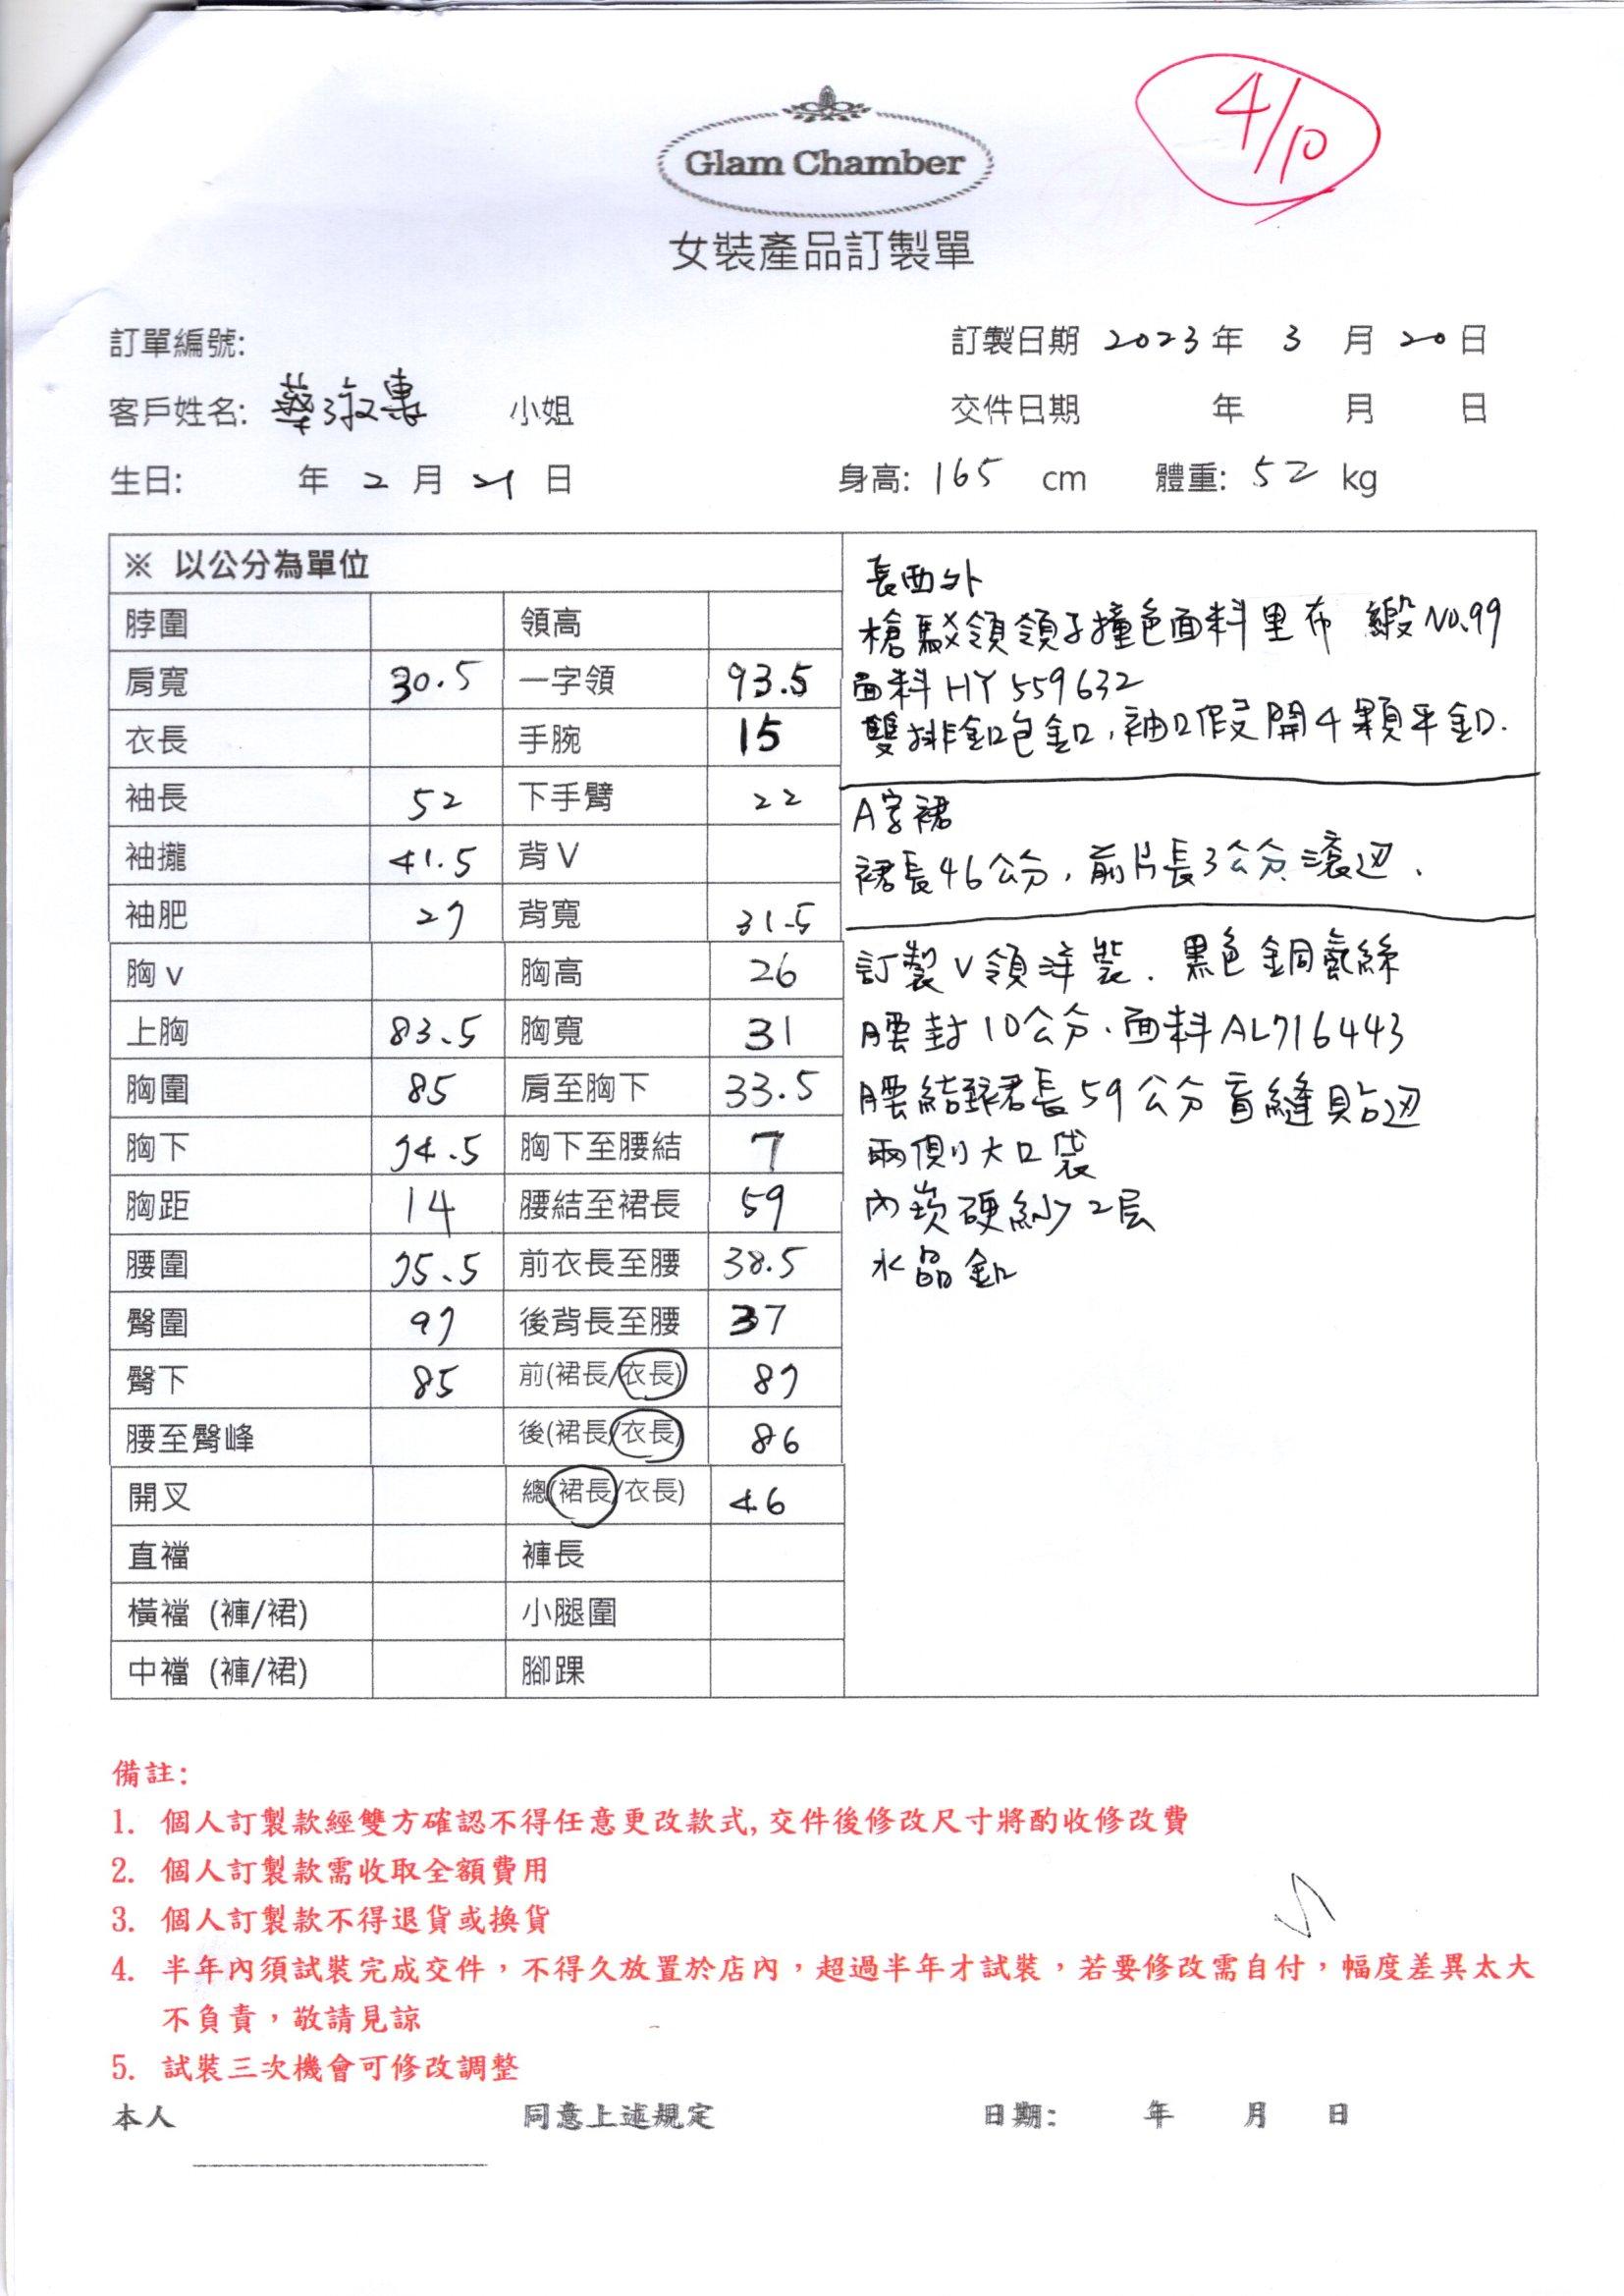 4/10
Glam Chamber
女裝產品訂製單
訂單編號: 訂製日期 2023年 3 月 20日
客戶姓名: 蔡淑惠 小姐 交件日期 年 月 日
生日: 年 2 月 21 日 身高: 165 cm 體重: 52 kg
※ 以公分為單位
脖圍 領高
肩寬 30.5 一字領 93.5
衣長 手腕 15
袖長 52 下手臂 22
袖攏 41.5 背V
袖肥 27 背寬 31.5
胸v 胸高 26
上胸 83.5 胸寬 31
胸圍 85 肩至胸下 33.5
胸下 74.5 胸下至腰結 7
胸距 14 腰結至裙長 59
腰圍 75.5 前衣長至腰 38.5
臀圍 97 後背長至腰 37
臀下 85 前(裙長/衣長) 87
腰至臀峰 後(裙長/衣長) 86
開叉 總(裙長/衣長) 46
直襠 褲長
橫襠 (褲/裙) 小腿圍
中襠 (褲/裙) 腳踝
長西外
槍駁領領子撞色面料里布 緞NO.99
面料HY559632
雙排釦包釦,袖口假開4顆平釦.
A字裙
裙長46公分,前片長3公分滾边.
訂製V領洋裝.黑色銅氨絲
腰封10公分.面料AL716443
腰結至裙長59公分盲縫貼边
兩側大口袋
內崁硬紗2层
水晶釦
備註:
1. 個人訂製款經雙方確認不得任意更改款式,交件後修改尺寸將酌收修改費
2. 個人訂製款需收取全額費用
3. 個人訂製款不得退貨或換貨
4. 半年內須試裝完成交件，不得久放置於店內，超過半年才試裝，若要修改需自付，幅度差異太大
不負責，敬請見諒
5. 試裝三次機會可修改調整
本人 同意上述規定 日期: 年 月 日